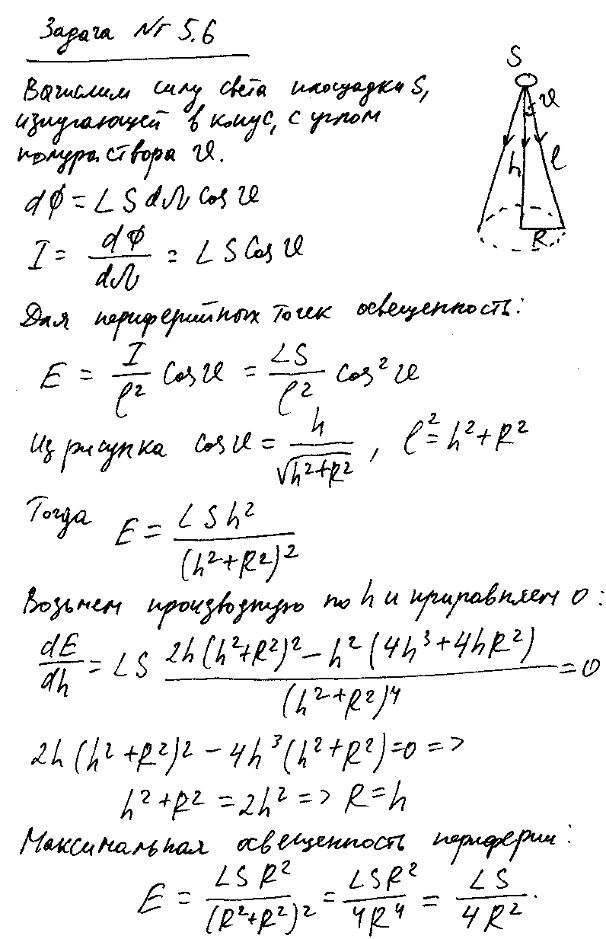 Задача № 5.6
Вычислим силу света площадки S,
излучающей в конус, с углом
полураствора ϑ.
dΦ = LS dΩ Cos ϑ
I = dΦ/dΩ = LS Cos ϑ
Для периферийных точек освещенность:
E = I/ℓ² Cos ϑ = LS/ℓ² Cos² ϑ
Из рисунка Cos ϑ = h/√(h²+R²), ℓ² = h²+R²
Тогда E = LSh²/(h²+R²)²
Возьмем производную по h и приравняем 0:
dE/dh = LS (2h(h²+R²)² – h²(4h³+4hR²))/(h²+R²)⁴ = 0
2h(h²+R²)² – 4h³(h²+R²) = 0 =>
h²+R² = 2h² => R = h
Максимальная освещенность периферии:
E = LSR²/(R²+R²)² = LSR²/4R⁴ = LS/4R².
S
ϑ
h
ℓ
R